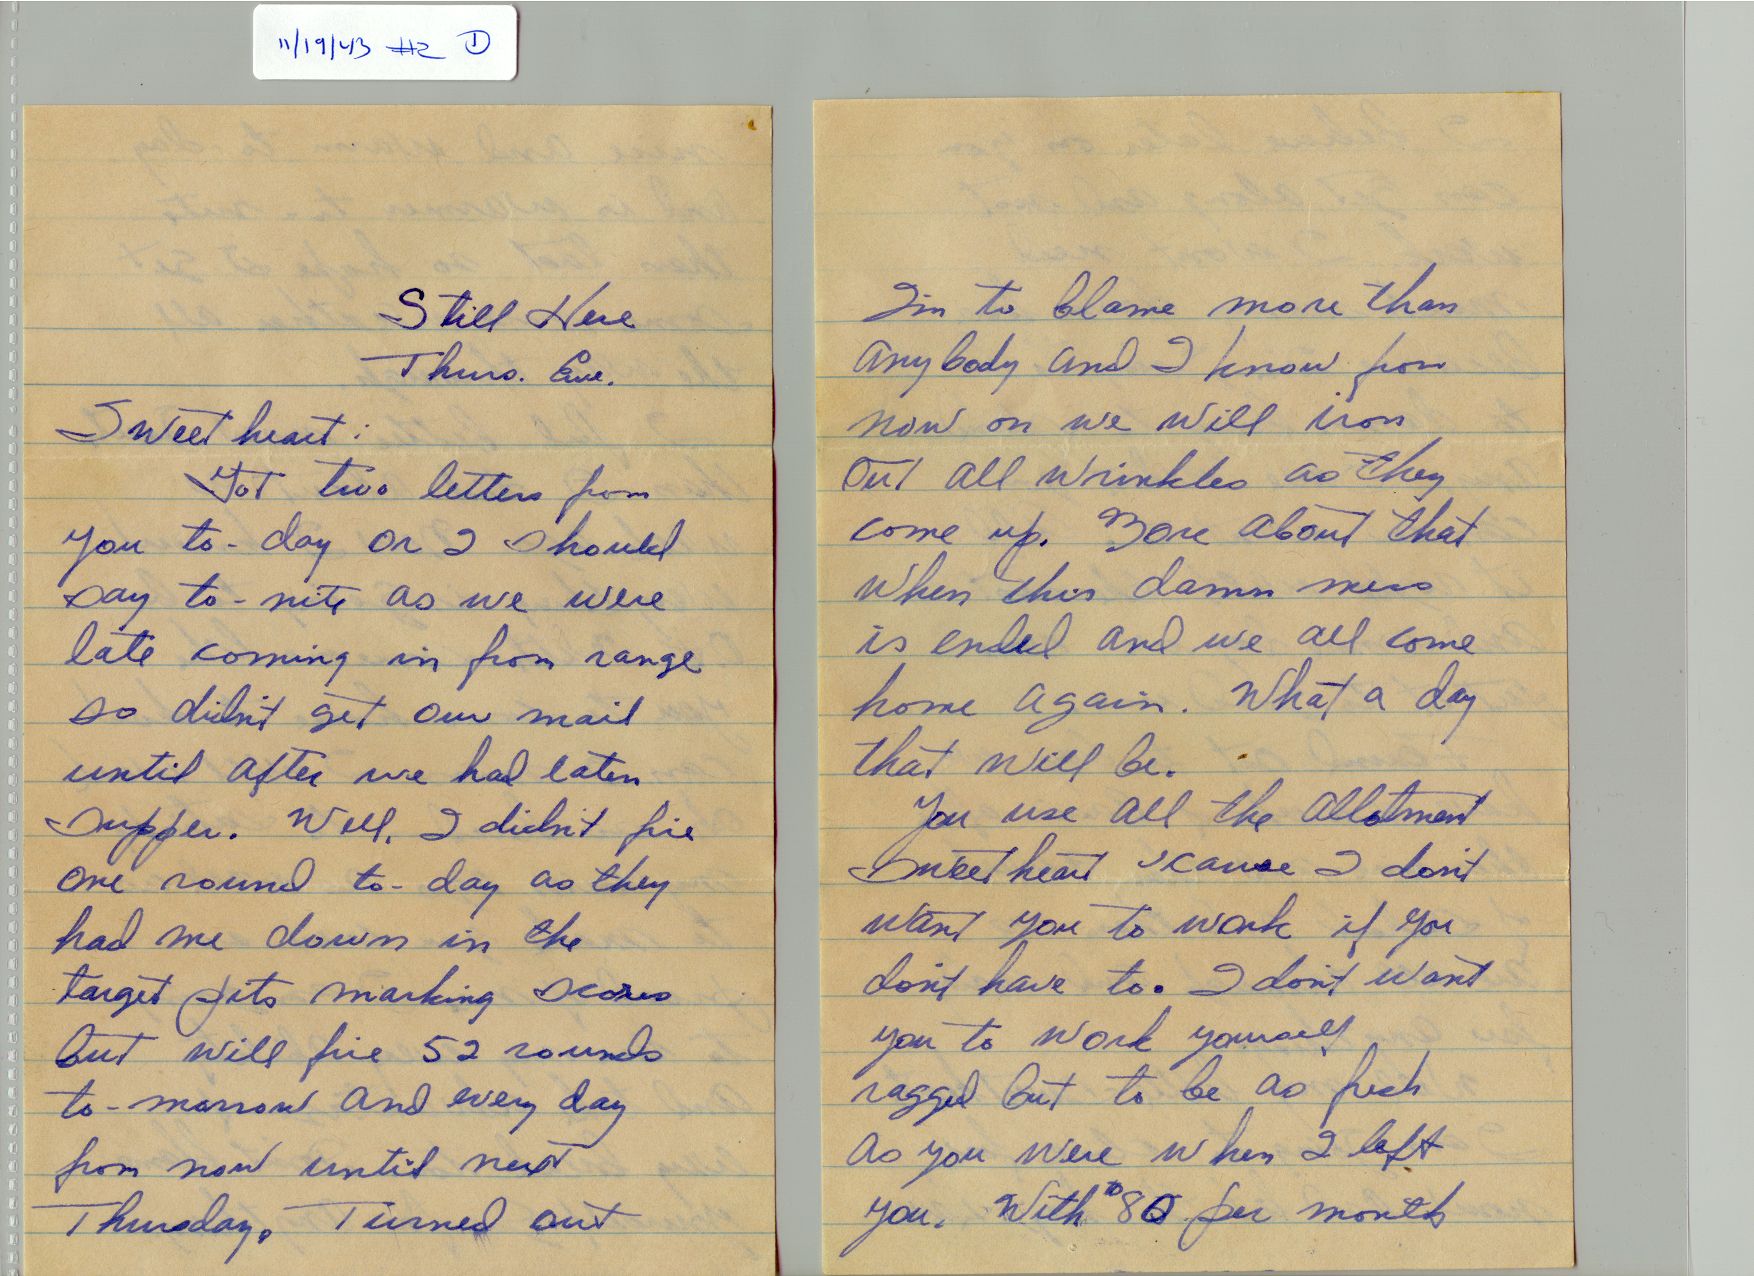 11/19/43 #2 ①
Still Here
Thurs. Eve.
Sweetheart:
Got two letters from
you to-day or I should
say to-nite as we were
late coming in from range
so didn't get our mail
until after we had eaten
supper. Well, I didn't fire
one round to-day as they
had me down in the
target pits marking scores
but will fire 52 rounds
to-morrow and every day
from now until next
Thursday. Turned out
I'm to blame more than
anybody and I know from
now on we will iron
out all wrinkles as they
come up. More about that
when this damn mess
is ended and we all come
home again. What a day
that will be.
You use all the allotment
sweetheart 'cause I don't
want you to work if you
don't have to. I don't want
you to work yourself
ragged but to be as fresh
as you were when I left
you. With $80 per month